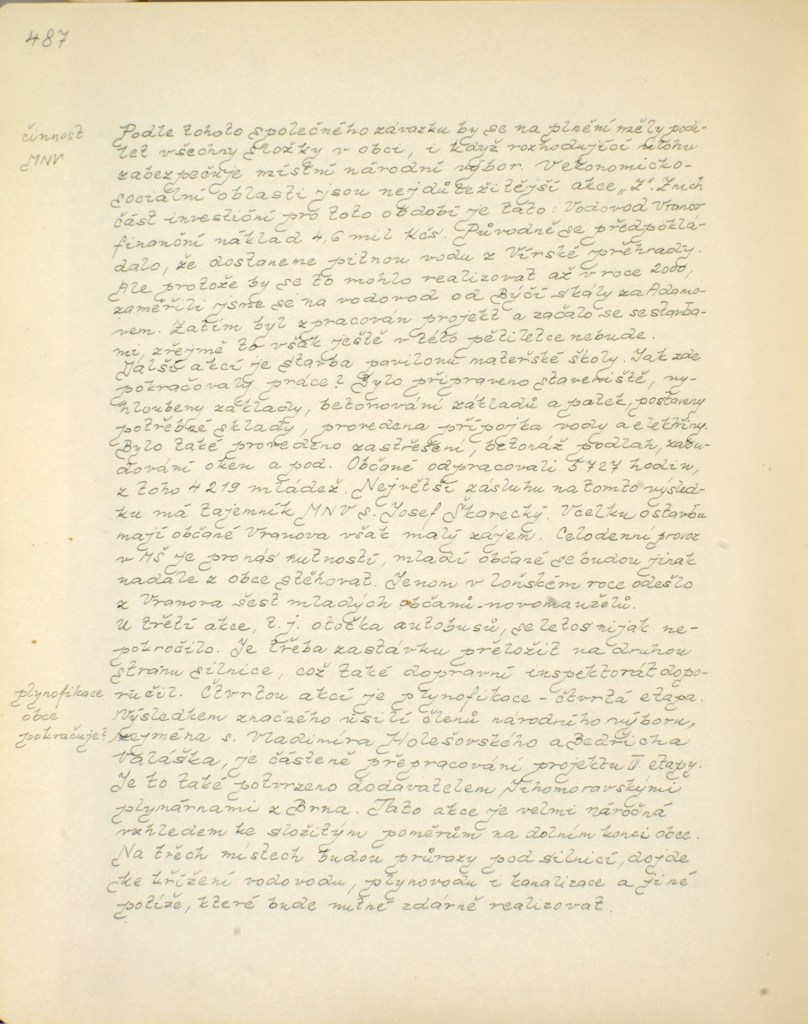 487
činnost
MNV
Podle tohoto společného závazku by se na plnění měly podí-
let všechny složky v obci, i když rozhodující úlohu
zabezpečuje místní národní výbor. V ekonomicko-
sociální oblasti jsou nejdůležitější akce „Z". Z nich
část investiční pro toto období je tato: Vodovod Vranov
finanční náklad 4,6 mil Kčs. Původně se předpoklá-
dalo, že dostaneme pitnou vodu z Vírské přehrady.
Ale protože by se to mohlo realizovat až v roce 2000,
zaměřili jsme se na vodovod od Býčí skály za Adamo-
vem. Zatím byl zpracován projekt a začalo se se stavba-
mi, zřejmě to však ještě v této pětiletce nebude.
Další akcí je stavba pavilonu mateřské školy. Jak zde
pokračovaly práce? Bylo připraveno staveniště, vy-
hloubeny základy, betonování základů a patek, postaveny
potřebné sklady, provedena přípojka vody a elektřiny.
Bylo také provedeno zastřešení, betonáž podlah, zabu-
dování oken a pod. Občané odpracovali 5727 hodin,
z toho 4219 mládež. Největší zásluhu na tomto výsled-
ku má tajemník MNV s. Josef Škarecký. Vcelku o stavbu
mají občané Vranova však malý zájem. Celodenní provoz
v MŠ je pro nás nutností, mladí občané se budou jinak
nadále z obce stěhovat. Jenom v loňském roce odešlo
z Vranova šest mladých občanů-novomanželů.
U třetí akce, t.j. otočka autobusů, se letos nijak ne-
pokročilo. Je třeba zastávku přeložit na druhou
stranu silnice, což také dopravní inspektorát dopo-
plynofikace
obce
pokračuje?
ručil. Čtvrtou akcí je plynofikace - čtvrtá etapa.
Výsledkem značného úsilí členů národního výboru,
zejména s. Vladimíra Holešovského a Bedřicha
Valáška, je částečné přepracování projektu II. etapy.
Je to také potvrzeno dodavatelem Jihomoravskými
plynárnami z Brna. Tato akce je velmi náročná
vzhledem ke složitým poměrům na dolním konci obce.
Na třech místech budou průrazy pod silnicí, dojde
ke křížení vodovodu, plynovodu i kanalizace a jiné
potíže, které bude nutné zdárně realizovat.